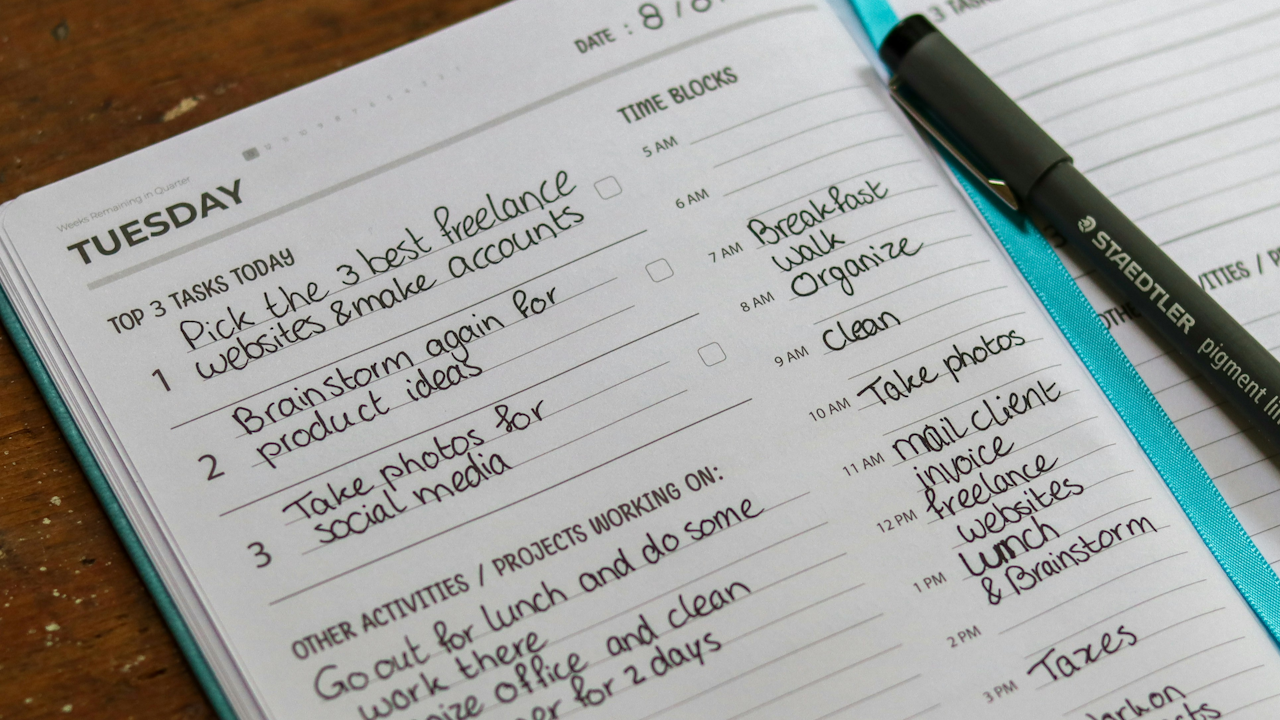 DATE : 8 / 8
Weeks Remaining in Quarter
TUESDAY
TOP 3 TASKS TODAY
1
Pick the 3 best freelance
websites & make accounts
2
Brainstorm again for
product ideas
3
Take photos for
social media
OTHER ACTIVITIES / PROJECTS WORKING ON:
Go out for lunch and do some
work there
office and clean
for 2 days
TIME BLOCKS
5 AM
6 AM
7 AM Breakfast
walk
8 AM Organize
9 AM Clean
10 AM Take photos
11 AM mail client
invoice
12 PM freelance
websites
1 PM lunch
& Brainstorm
2 PM
3 PM Taxes
3
STAEDTLER
pigment